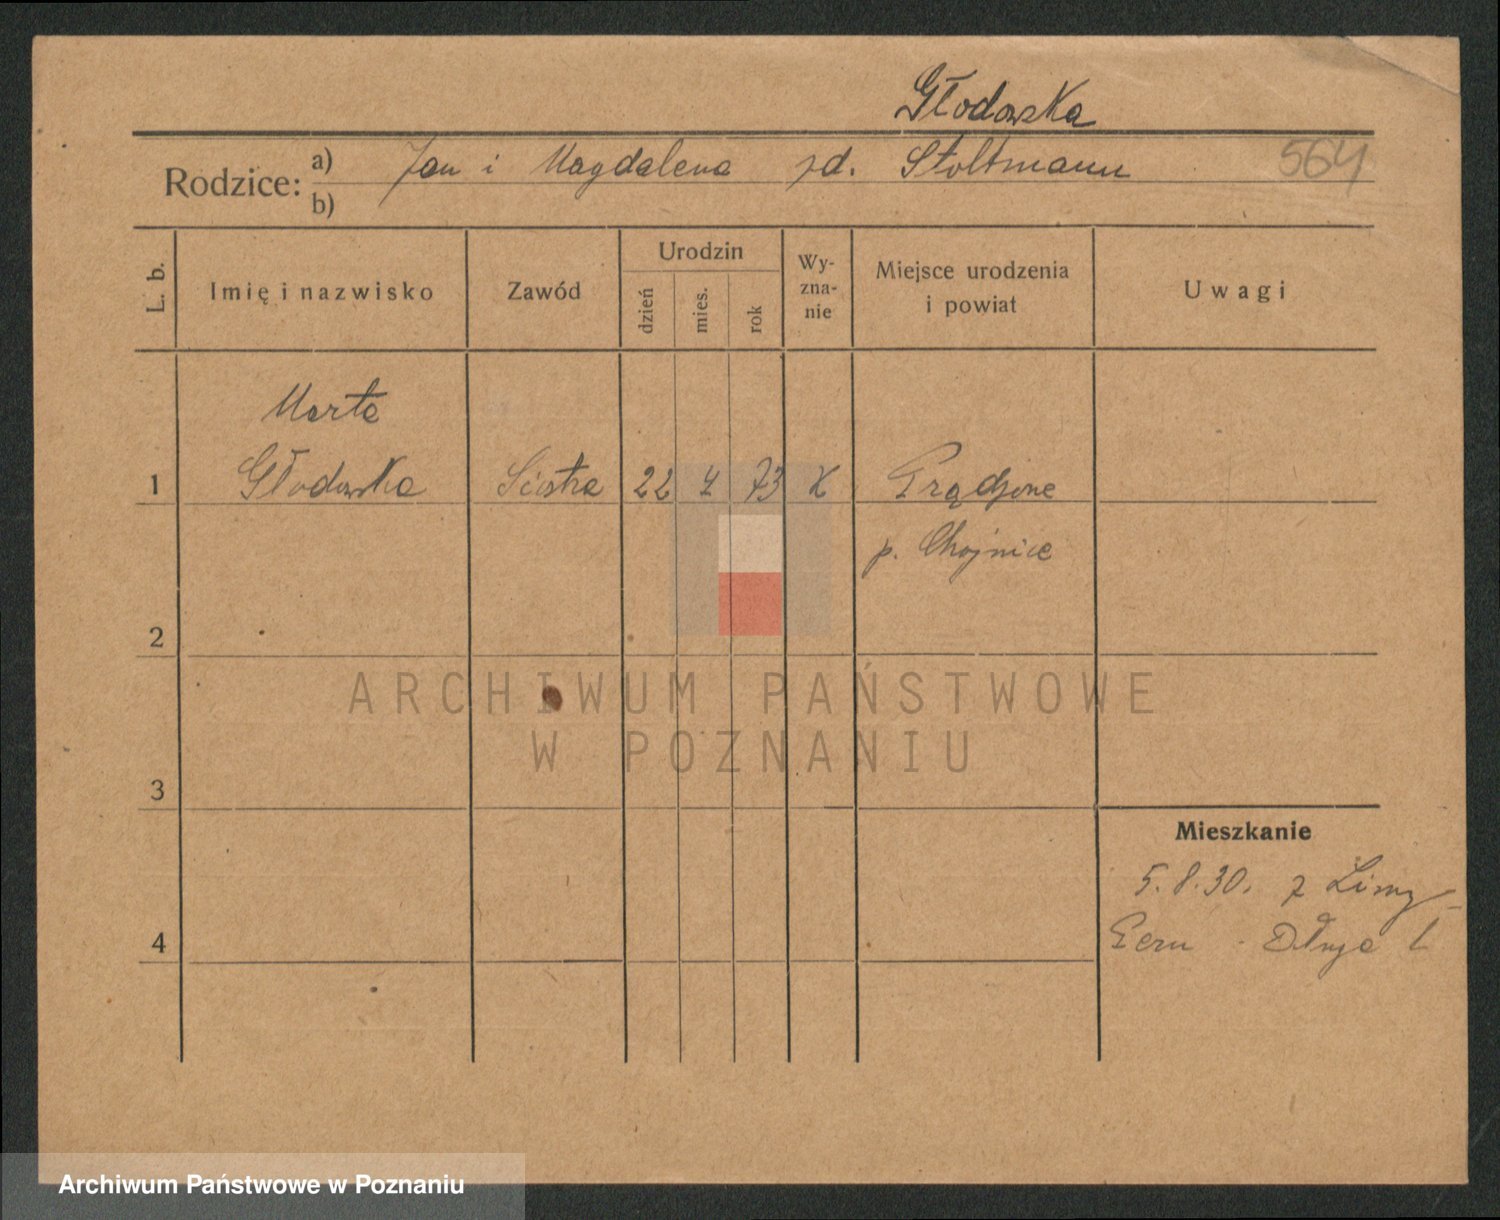 Głodowska
Rodzice: a) Jan i Magdalena zd. Stoltmann 564
b)
L. b. Imię i nazwisko Zawód Urodzin dzień mies. rok Wyznanie Miejsce urodzenia i powiat Uwagi
Marta
1 Głodowska Siostra 22 4 73 K Prądzone
p. Chojnice
2
ARCHIWUM PAŃSTWOWE
W POZNANIU
3
Mieszkanie
5.8.30. z
4 Długa
Archiwum Państwowe w Poznaniu